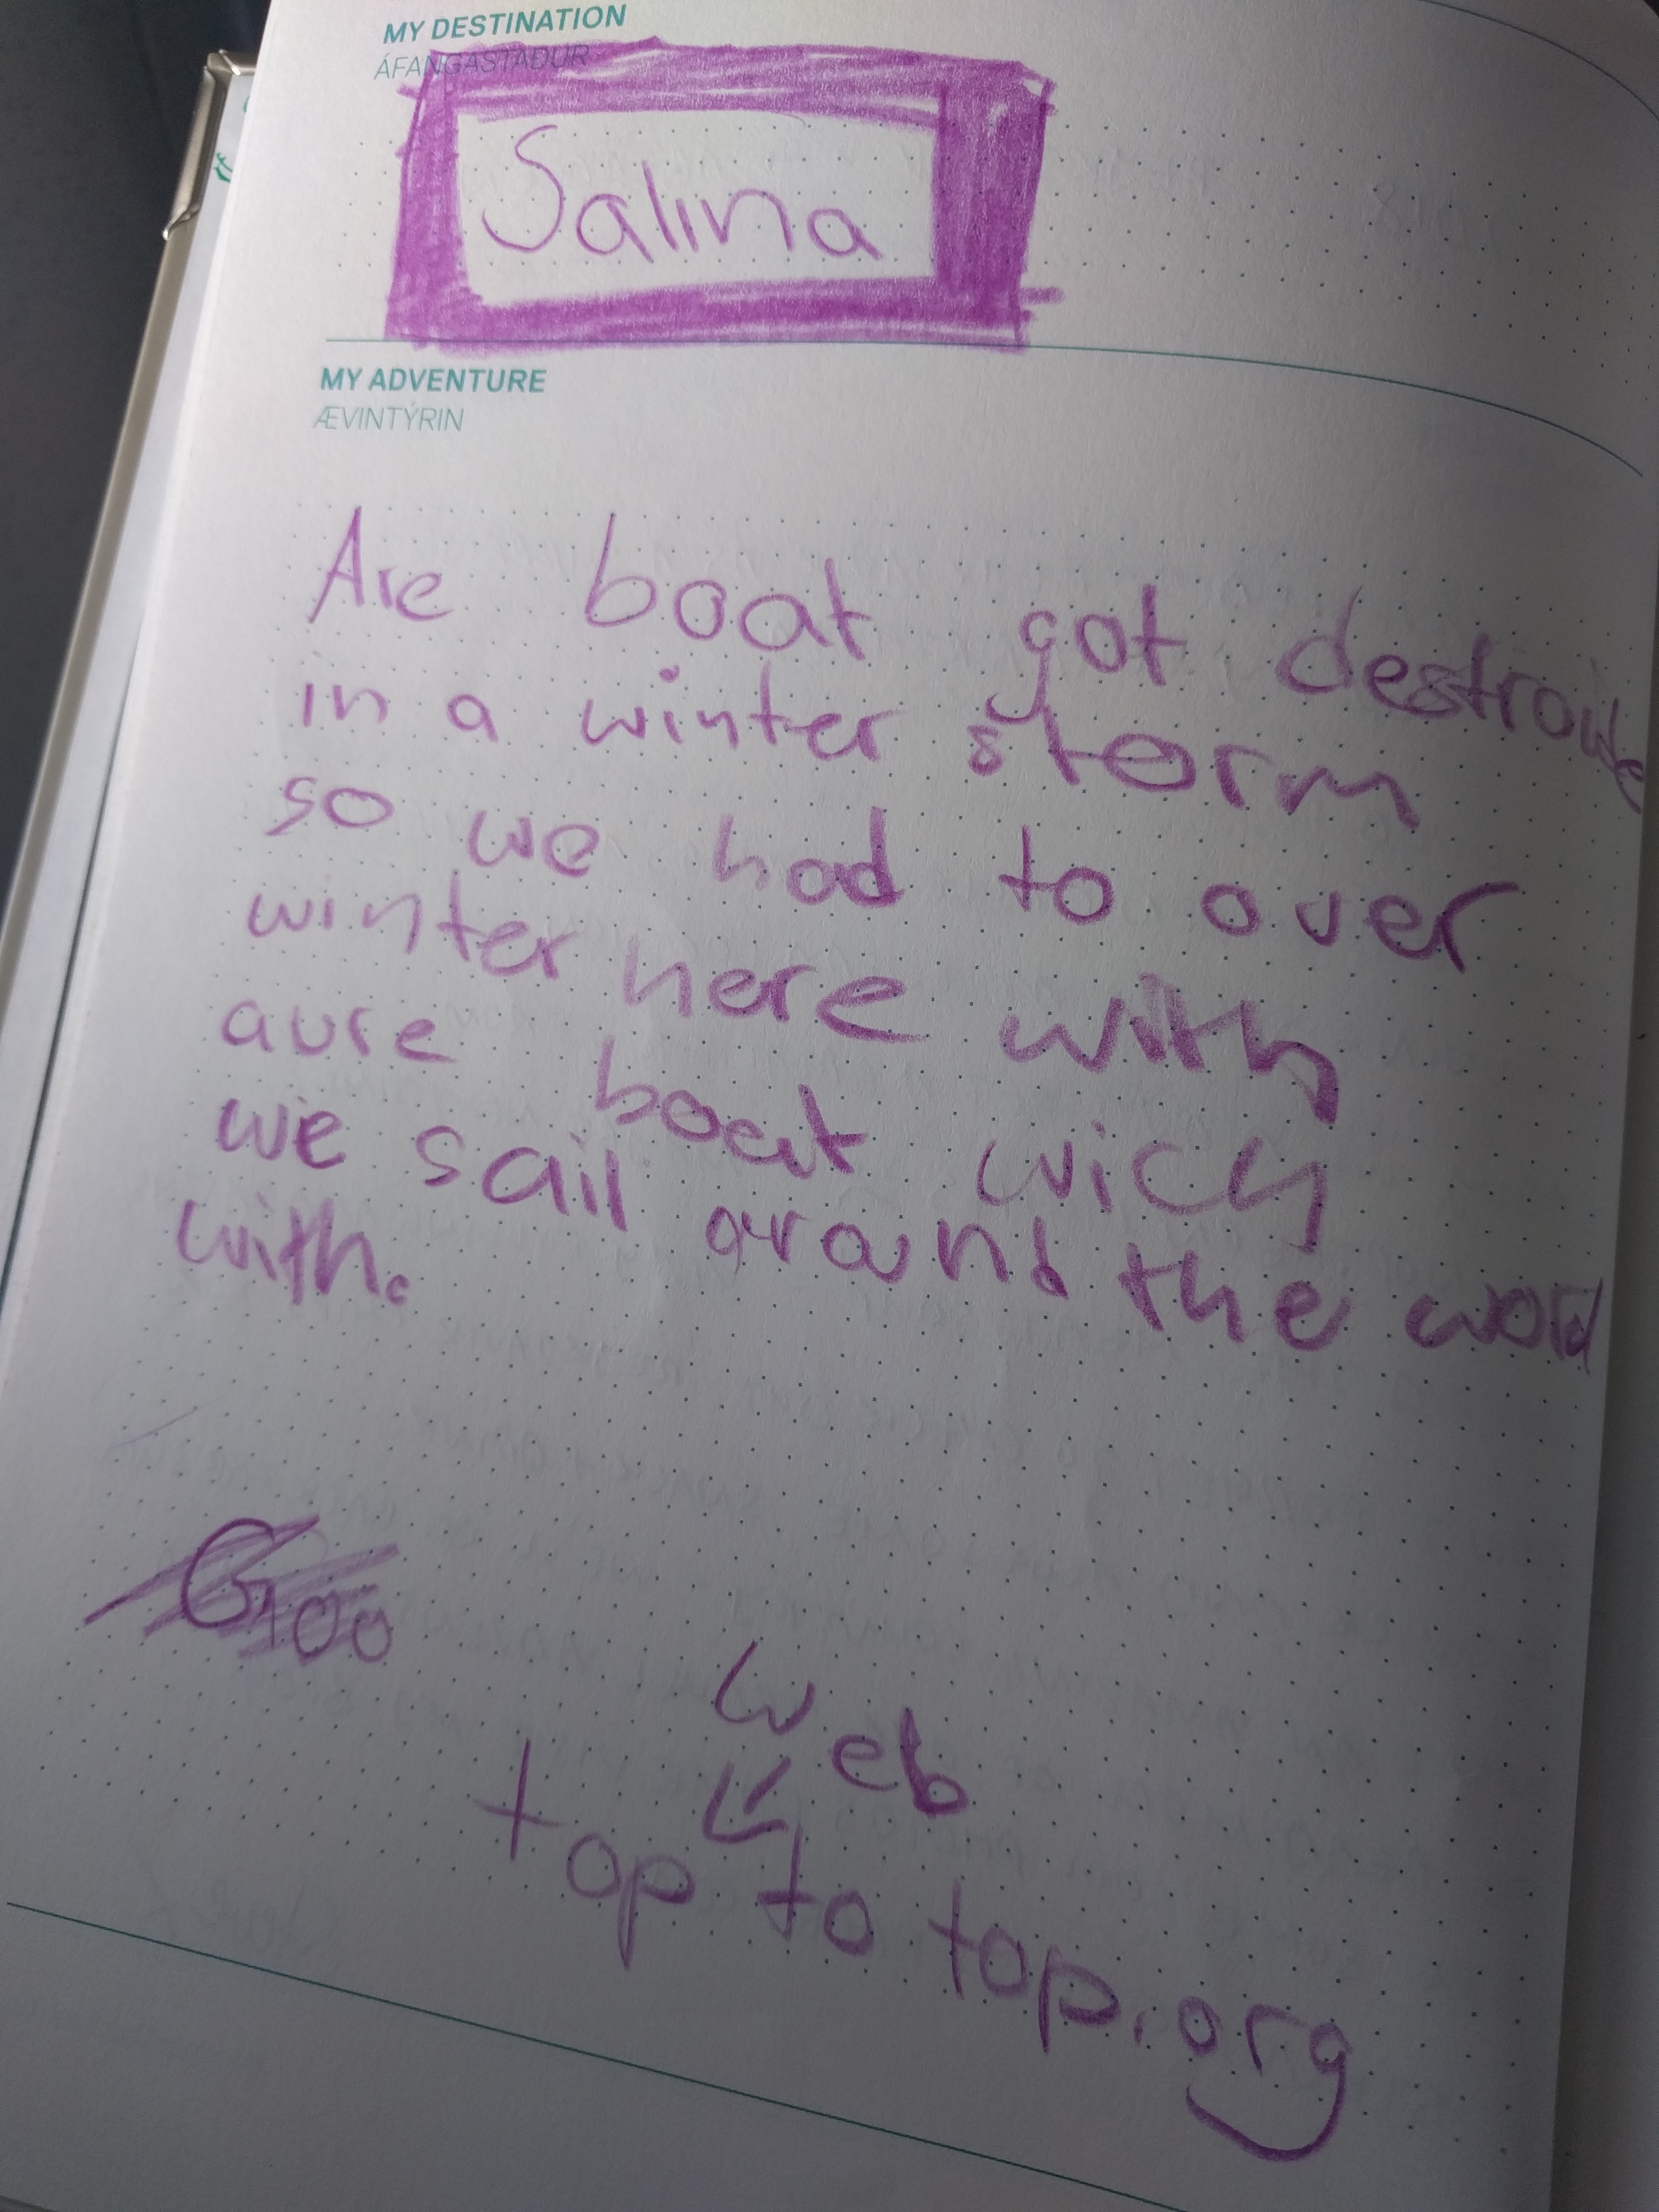 MY DESTINATION
ÁFANGASTAÐUR
Salina
MY ADVENTURE
ÆVINTÝRIN
Are boat got destroide
in a winter storm
so we had to over
winter here with
aure boat wich
we sail around the world
with.
web
top to top.org